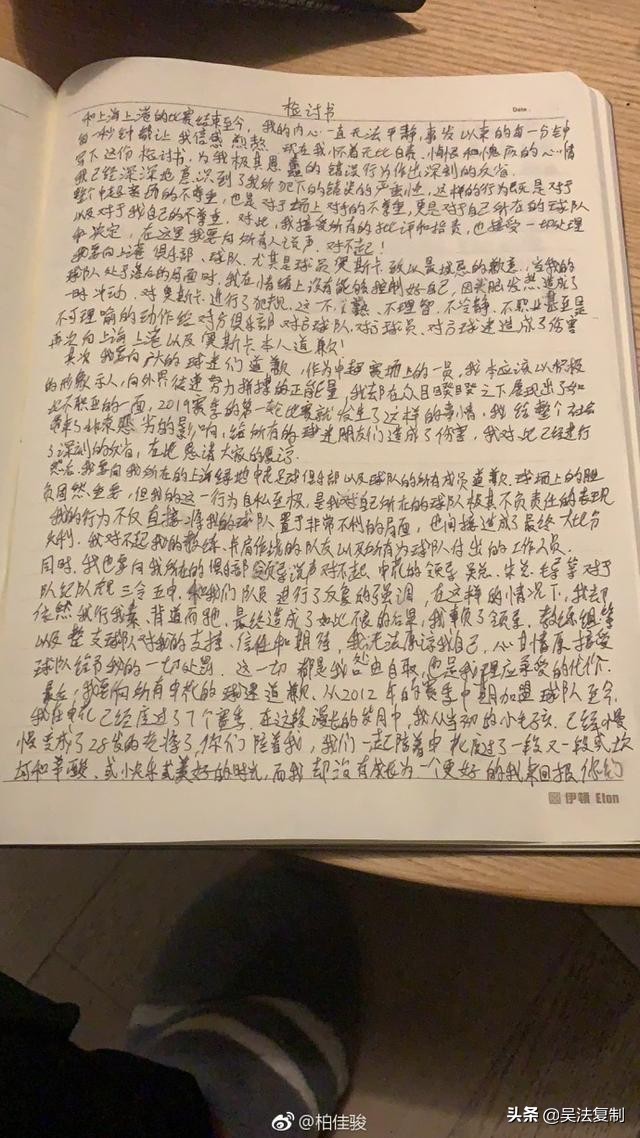 检讨书
Date.
和上海上港的比赛结束至今，我的内心一直无法平静，事发以来的每一分钟
每一秒钟都让我倍感煎熬。现在我怀着无比自责、悔恨和愧疚的心情
写下这份检讨书，为我极其愚蠢的错误行为作出深刻的反省。
我已经深深地意识到了我所犯下的错误的严重性，这样的行为既是对于
整个中超赛场的不尊重，也是对于场上对手的不尊重，更是对于自己所在的球队
以及对于我自己的不尊重。对此，我接受所有的批评和指责，也接受一切处理
和决定，在这里我要向所有人说声，对不起！
我要向上港俱乐部、球队、尤其是球员奥斯卡致以最诚恳的歉意，当我的
球队处于落后的局面时，我在情绪上没有能够控制好自己，因此
一时冲动，对奥斯卡进行了犯规，这一不、不理智、不冷静、不职业甚至是
不可理喻的动作给对方俱乐部对方球队、对方球员、对方球迷造成了伤害
再次向上海上港以及奥斯卡本人道歉！
其次，我要向广大的球迷们道歉，作为中超赛场上的一员，我本应该以积极
的形象示人，向外界传递努力拼搏的正能量，我却在众目睽睽之下展现出了如
此不职业的一面，2019赛季的第一轮比赛就发生了这样的事情，我给整个社会
带来了非常恶劣的影响，给所有的球迷朋友们造成了伤害，我对此已经进行
了深刻的反省，在此恳请大家的原谅
然后，我要向我所在的上海绿地申花足球俱乐部以及球队的所有成员道歉。球场上的胜
负固然重要，但我的这一行为自私至极，是我对自己所在的球队极其不负责任的表现
我的行为不仅直接将我的球队置于非常不利的局面，也间接造成了最终大比分
失利。我对不起我的教练、并肩作战的队友以及所有为球队付出的工作人员。
同时，我也要向我所在的俱乐部领导说声对不起、申花的领导吴总、朱总、毛导等对于
队纪队规三令五申，和我们队员进行了反复的强调，在这样的情况下，我却
依然我行我素、背道而驰，最终造成了如此不良的后果，我辜负了领导、教练组
以及整支球队对我的支持、信任和期待，我无法原谅我自己，心甘情愿接受
球队给予我的一切处罚。这一切都是我咎由自取，也是我理应承受的代价。
最后，我要向所有申花的球迷道歉，从2012年的赛季中期加盟球队至今，
我在申花已经度过了7个赛季。在这段漫长的岁月中，我从当初的小毛孩，已经慢
慢变成了28岁的老将了，你们陪着我，我们一起陪着申花度过了一段又一段或坎
坷和辛酸、或小快乐或美好的时光，而我却没有成长为一个更好的我来回报你们
伊顿 Eton
@柏佳骏
头条 @吴法复制